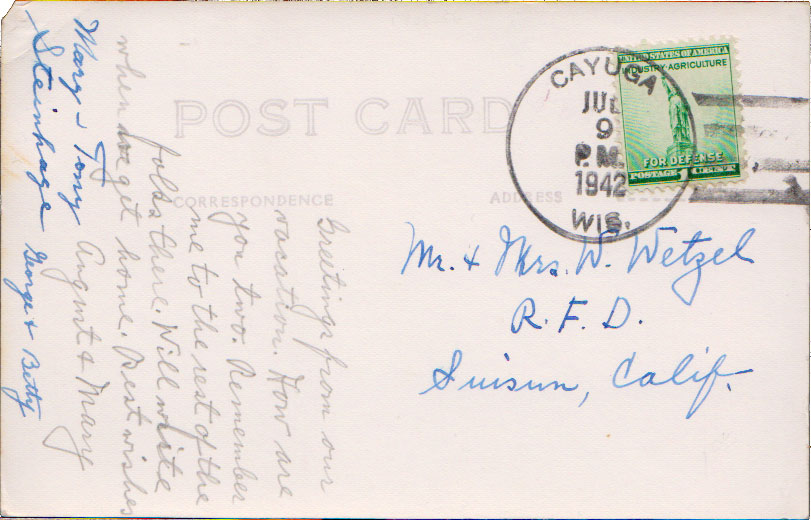 POST CARD
CORRESPONDENCE
ADDRESS
UNITED STATES OF AMERICA
INDUSTRY·AGRICULTURE
FOR DEFENSE
POSTAGE 1 CENT
CAYUGA
JUL
9
P.M.
1942
WIS.
Mr. & Mrs. W. Wetzel
R. F. D.
Suisun, Calif.
Greetings from our
vacation. How are
you two. Remember
me to the rest of the
folks there. Will write
when we get home. Best wishes
August & Mary
Mary - Tony
Steinhage
George & Betty